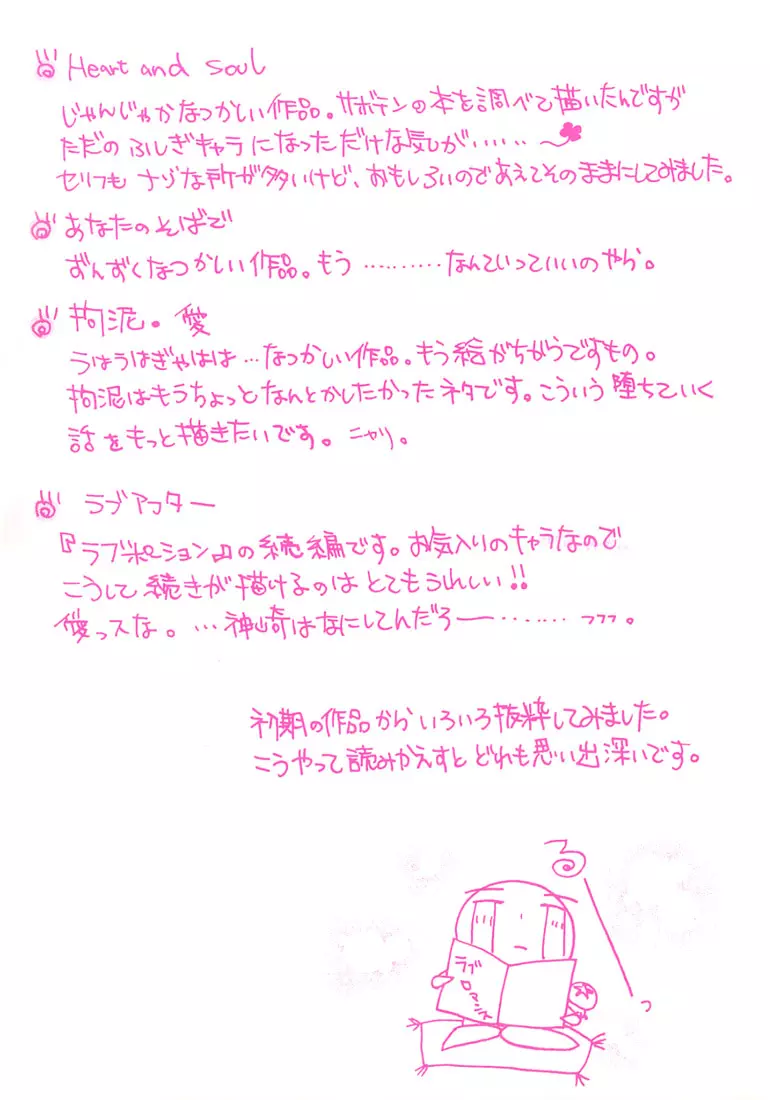 Heart and Soul
じゃんじゃかなつかしい作品。サボテンの本を調べて描いたんですが
ただのふしぎキャラになっただけな気が……
セリフもナゾな所が多いけど、おもしろいのであえてそのままにしてみました。
あなたのそばで
ずんずくなつかしい作品。もう………なんていっていいのやら。
拘泥。愛
うほうはぎゃはは…なつかしい作品。もう絵がちがうですもの。
拘泥はもうちょっとなんとかしたかったネタです。こういう堕ちていく
話をもっと描きたいです。ニヤリ。
ラブアフター
『ラブポーション』の続編です。お気入りのキャラなので
こうして続きが描けるのはとてもうれしい!!
愛っスな。…神崎はなにしてんだろー……フフフ。
初期の作品からいろいろ抜粋してみました。
こうやって読みかえすとどれも思い出深いです。
る
っ
ラブ